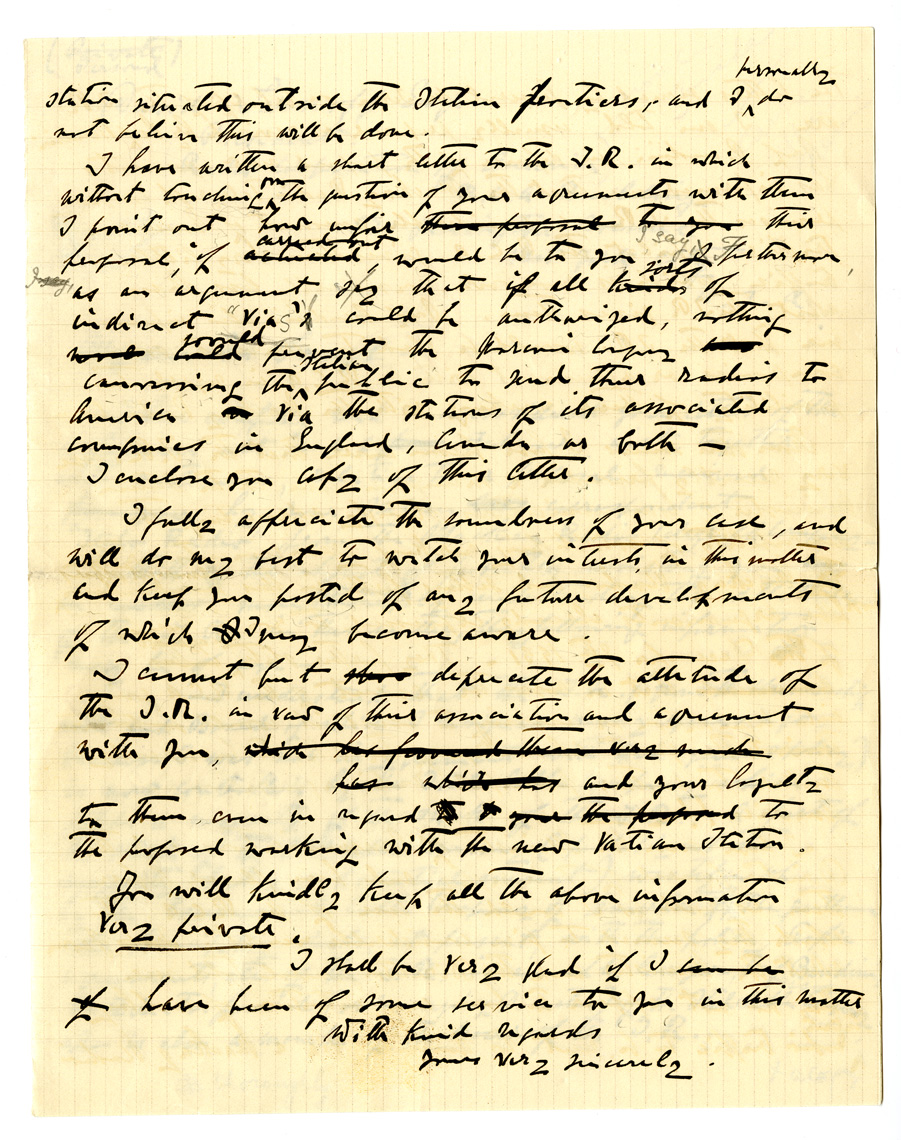 personally
station situated outside the Italian frontiers, and I do
not believe this will be done.
I have written a short letter to the I.R. in which
without touching on the question of your agreements with them
I point out how unfair their proposal to you this
carried out I say,
proposal, if activated, would be to you. Furthermore,
I say,
as an argument say that if all kinds sorts of
indirect "Vias" could be authorized, nothing
would could prevent the Marconi Company
canvassing the Italian public to send their radios to
America via the stations of its associated
companies in England, Canada or both —
I enclose you copy of this letter.
I fully appreciate the soundness of your case, and
will do my best to watch your interests in this matter
and keep you posted of any future developments
of which I may become aware.
I cannot but deprecate the attitude of
the I.R. in view of their association and agreement
with you, which has favoured them very much
has which has and your loyalty
to them even in regard to your the proposed to
the proposed working with the new Vatican Station.
You will kindly keep all the above information
very private.
I shall be very glad if I can be
of have been of some service to you in this matter
With kind regards
Yours very sincerely.